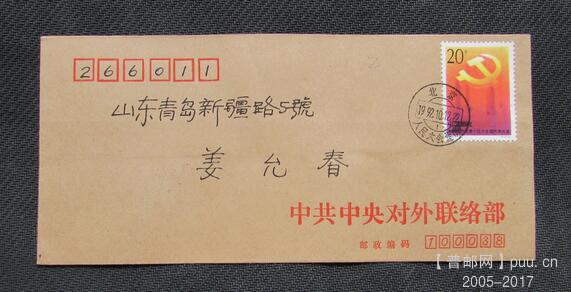 266011
20分
北京
1992.10.12.22
山东青岛新疆路5號
姜允春
中共中央对外联络部
邮政编码 100038
【普邮网】puu.cn
2005-2017